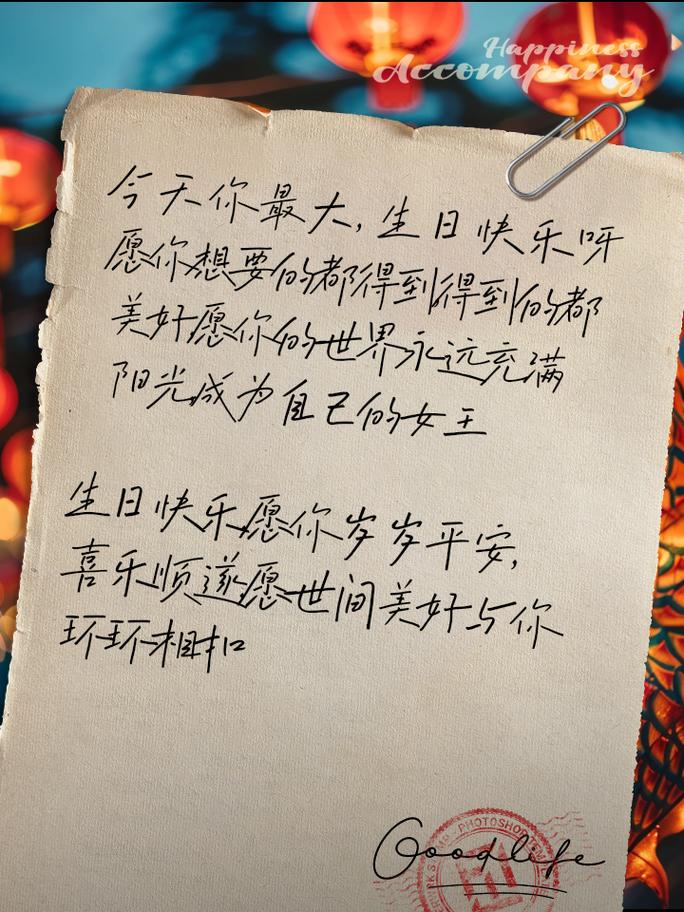 Happiness
Accompany
今天你最大,生日快乐呀
愿你想要的都得到得到的都
美好愿你的世界永远充满
阳光成为自己的女王
生日快乐愿你岁岁平安,
喜乐顺遂愿世间美好与你
环环相扣
PHOTOSHOP
Goodlife